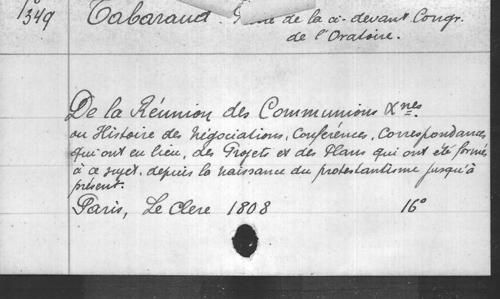 349 Tabaraud. de la ci-devant Congr.
de l'Oratoire.
De la Réunion des Communions Xnes
ou Histoire des Négociations, Conférences, Correspondances
qui ont eu lieu, des Projets et des Plans qui ont été formés
à ce sujet, depuis la naissance du protestantisme jusqu'à
présent.
Paris, Le Clere 1808 16°